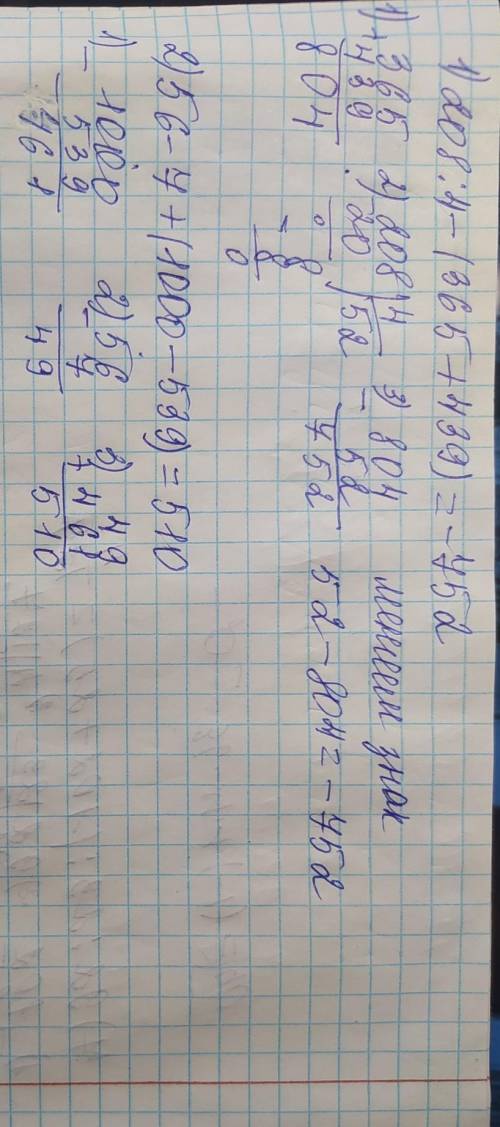 1) 208:4-(365+439)=-752
1) +365 2) 208 | 4 3) 804 меняем знак
439 20 | 52 - 52
804 - 8 752 52-804=-752
8
0
2) 56-7+(1000-539)=510
1) - 1000 2) - 56 3) + 49
539 7 461
461 49 510